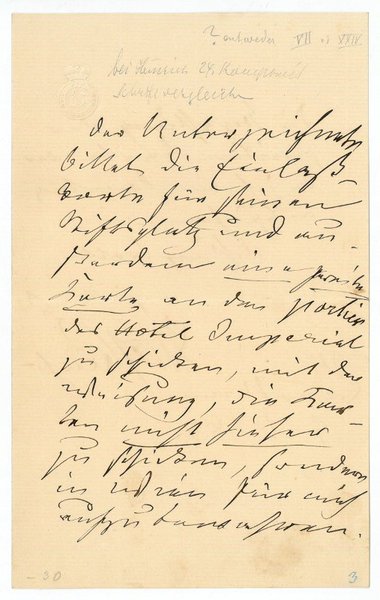 ? entweder VII od XXIV
bei Heinrich 24
vergleichen
Der Unterzeichnete
bittet die Einlaß-
karte für seinen
Stiftsplatz und au-
ßerdem eine zweite
Karte an den Portier
des Hotel Imperial
zu schicken, mit der
Weisung, die Kar-
ten nicht hieher
zu schicken, sondern
in Wien für mich
aufzubewahren.
-30
3